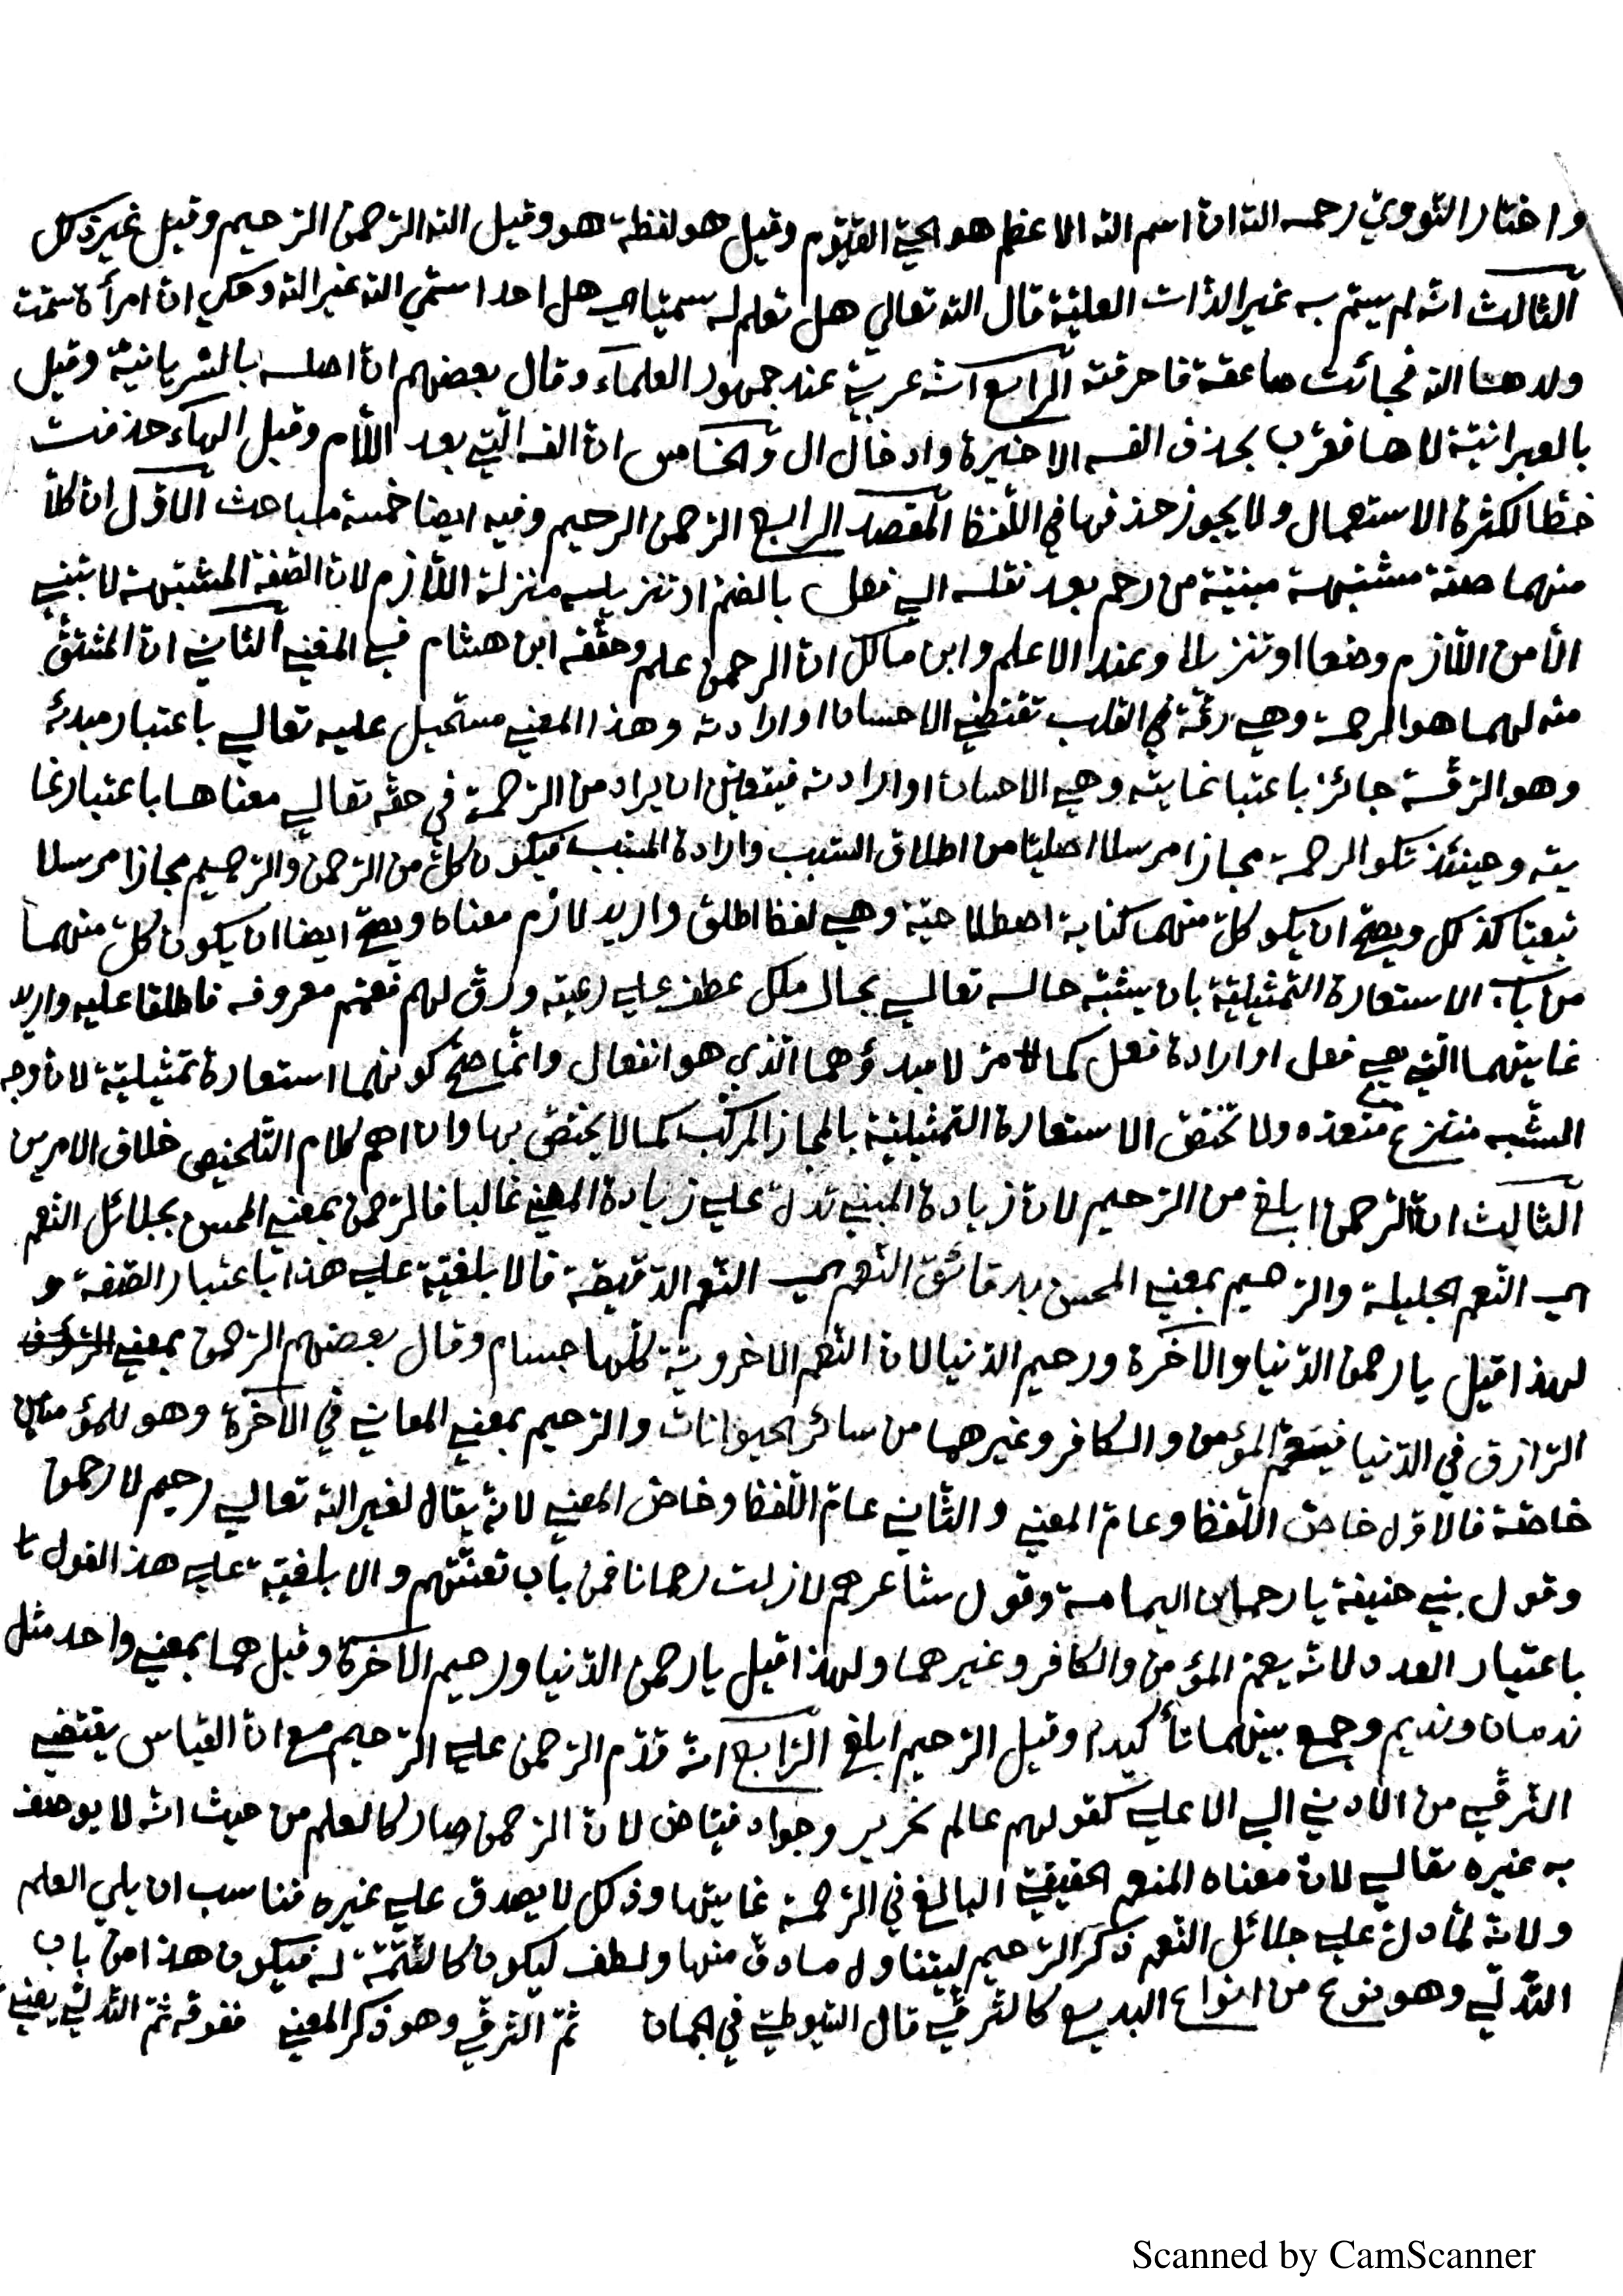 واختار النّوويّ رحمه الله انّ اسم الله الاعظم هو الحيّ القيّوم وقيل هو لفظة هو وقيل الله الرّحمن الرّحيم وقيل غير ذلك
الثالث انّه لم يسمّ به غير الذّات العليّة قال الله تعالي هل تعلم له سميّا اي هل احدا سمّي الله غير الله وحكي انّ امرأة سمّت
ولدها الله فجائت صاعقة فاحرقته الرّابع انّه عربيّ عند جمهور العلمآء وقال بعضهم انّ اصله بالسّريانيّة وقيل
بالعبرانيّة لاها فعُرّب بحذف الفه الاخيرة وادخال ال والخامس انّ الفه الّتي بعد اللّام وقبل الهآء حذفت
خطّا لكثرة الاستعمال ولا يجوز حذفها في اللّفظ المقصد الرابع الرّحمن الرحيم وفيه ايضا خمسة مباحث الاوّل ان كلّا
منهما صفة مشتبهة مبنيّة من رحم بعد نقله الي فعل بالضّم او تنزيله منزلة اللّازم لانّ الصّفة المشبّهة لا تبني
الّا من اللّازم وضعا او تنزيلا وعند الاعلم وابن مالك انّ الرحمن علم وحقّقه ابن هشام في المغني الثّاني انّ المشتقّ
منه لهما هو الرحمة وهي رقّة في القلب تقتضي الاحسان او ارادته وهذا المعني مستحيل عليه تعالي باعتبار مبدئه
وهو الرّقّة جائز باعتبا غايته وهي الاحسان او ارادته فيتعيّن ان يراد من الرّحمة في حقّه تعالي معناها باعتبار غا
يته وحينئذ تكو الرحمة مجازا مرسلا اصليّا من اطلاق السّبب وارادة المسبّب فيكون كلّ من الرّحمن والرّحيم مجازا مرسلا
تبعيّا كذلك ويصحّ ان يكو كلّ منهما كناية اصطلاحيّة وهي لفظ اطلق واريد لازم معناه ويصحّ ايضا ان يكون كلّ منهما
من باب الاستعارة التّمثيليّة بان يشبّه حاله تعالي بحال ملك عطف علي رعيته ورقّ لهم فعمّهم معروفه فاطلقا عليه واريد
غايتهما الّتي هي فعل او ارادة فعل كما مرّ لا مبدؤهما الّذي هو انفعال وانّما صحّ كونهما استعارة تمثيليّة لانّ وجه
الشّبه منتزع متعدّد ولا تختصّ الاستعارة التّمثيليّة بالمجاز المركّب كما لا يختصّ بها وان اهم كلام التّلخيص خلاف الامرين
الثالث انّ الرّحمن ابلغ من الرّحيم لانّ زيادة المبني تدلّ علي زيادة المعني غالبا فالرّحمن بمعني المحسن بجلائل النّعم
اي النّعم الجليلة والرّحيم بمعني المحسن بدقائق النّعم اي النّعم الدّقيقة فالابلغيّة علي هذا باعتبار الصّفة و
لهذا قيل يا رحمن الدّنيا والآخرة ورحيم الدّنيا لانّ النّعم الاخرويّة كلّها جسام وقال بعضهم الرّحمن بمعني
الرّازق في الدّنيا فيعمّ المؤمن والكافر وغيرهما من سائر الحيوانات والرّحيم بمعني المعافي في الآخرة وهو للمؤمنين
خاصّة فالاوّل خاصّ اللّفظ وعامّ المعني والثّاني عامّ اللّفظ وخاصّ المعني لانّه يقال لغير الله تعالي رحيم لا رحمن
وقول بني حنيفة يا رحمان اليمامة وقول شاعرهم لا زلت رحمانا فمن باب تعنّتهم والابلغيّة علي هذا القول
باعتبار العدد لانّه يعمّ المؤمن والكافر وغيرهما ولهذا قيل يا رحمن الدّنيا ورحيم الآخرة وقيل هما بمعني واحد مثل
ندمان ونديم وجمع بينهما تأكيدا وقيل الرّحيم ابلغ الرّابع انّه قدّم الرّحمن علي الرّحيم مع انّ القياس يقتضي
التّرقّي من الادني الي الاعلي كقولهم عالم نحرير وجواد فيّاض لانّ الرّحمن صار كالعلم من حيث انّه لا يوصف
به غيره تعالي لانّ معناه المنعم الحقيقيّ البالغ في الرّحمة غايتها وذلك لا يصدق علي غيره فناسب ان يلي العلم
ولانّه لمّا دلّ علي جلائل النّعم ذكر الرّحيم ليتناول ما دقّ منها ولطف ليكون كالتّتمّة له فيكون هذا من باب
التّدلّي وهو نوع من انواع البديع كالتّرقّي قال السّيوطيّ في الجمان ثمّ التّرقّي وهو ذكر المعني ففوقه ثمّ التّدلّي يعني
Scanned by CamScanner